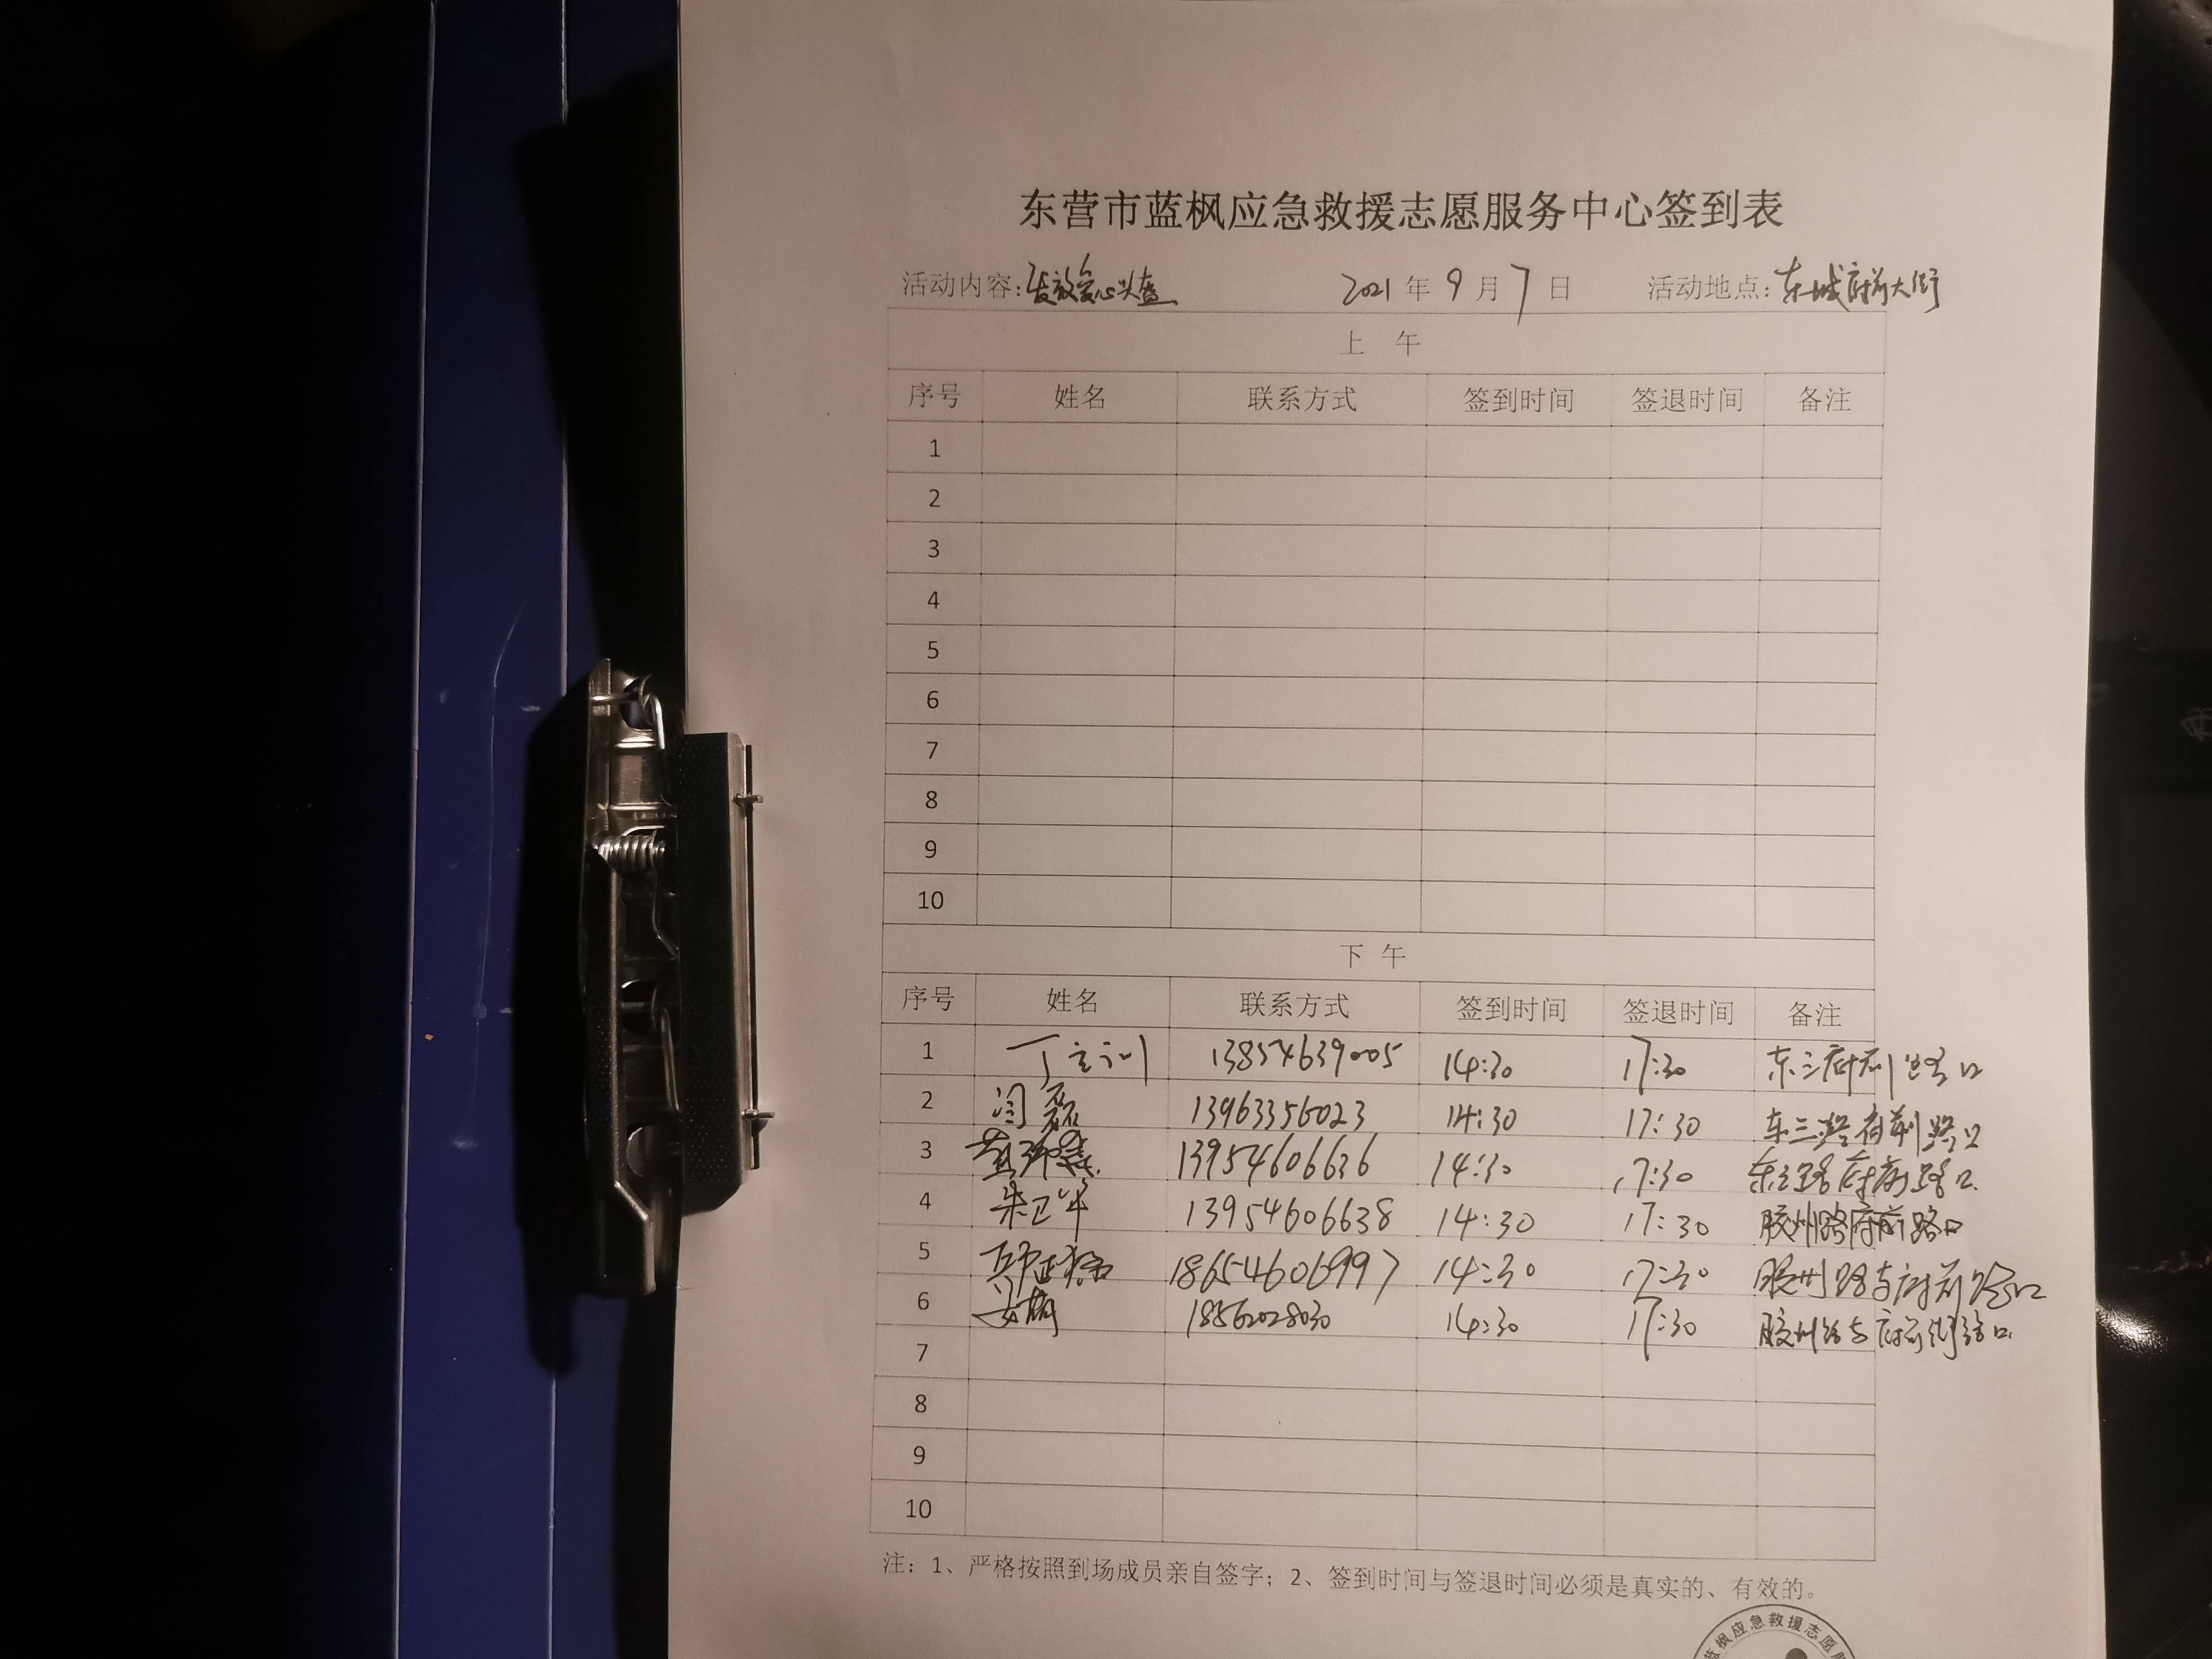 东营市蓝枫应急救援志愿服务中心签到表
活动内容:发放爱心头盔 2021年9月7日 活动地点:东城府前大街
上 午
序号 姓名 联系方式 签到时间 签退时间 备注
1
2
3
4
5
6
7
8
9
10
下 午
序号 姓名 联系方式 签到时间 签退时间 备注
1 丁立训 13854639005 14:30 17:30 东三府前路口
2 闫磊 13963356023 14:30 17:30 东三路府前路口
3 13954606636 14:30 17:30 东三路府前路口
4 朱卫华 13954606638 14:30 17:30 胶州路府前路口
5 18654606997 14:30 17:30 胶州路与府前路口
6 安萌 18562028030 14:30 17:30 胶州路与府前街路口
7
8
9
10
注：1、严格按照到场成员亲自签字；2、签到时间与签退时间必须是真实的、有效的。
蓝枫应急救援志愿服